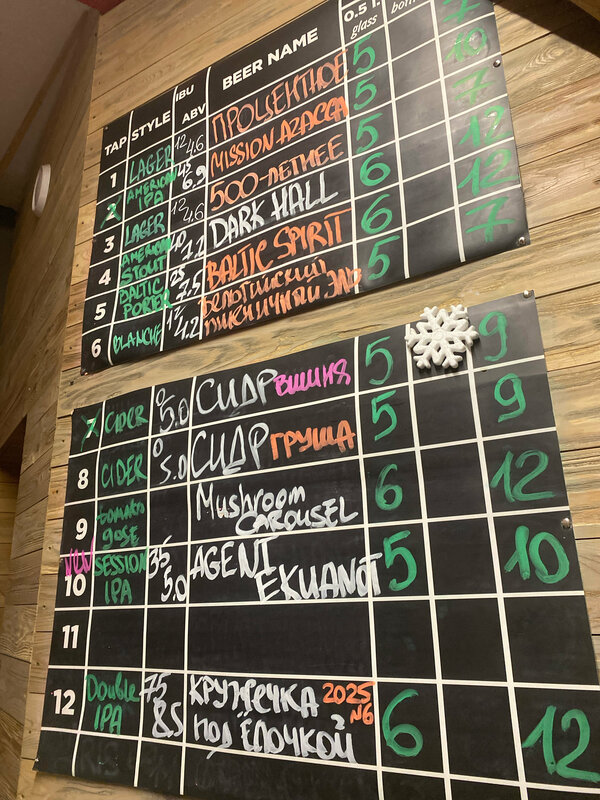 TAP STYLE IBU ABV BEER NAME 0.5 l. glass
1 LAGER 12 4.6 ПРОЦЕНТНОЕ 5 7
2 AMERICAN IPA 6.9 MISSION AZACCA 5 10
3 LAGER 12 4.6 500-ЛЕТНЕЕ 5 7
4 AMERICAN STOUT 7.2 DARK HALL 6 12
5 BALTIC PORTER 25 7.5 BALTIC SPIRIT 6 12
6 BLANCHE 12 4.2 БЕЛЬГИЙСКИЙ ПШЕНИЧНЫЙ ЭЛЬ 5 7
7 CIDER 0 5.0 СИДР ВИШНЯ 5 9
8 CIDER 0 5.0 СИДР ГРУША 5 9
9 tomato gose Mushroom CAROUSEL 6 12
NEW 10 SESSION IPA 35 5.0 AGENT EKUANOT 5 10
11
12 Double IPA 75 8.5 КРУЖЕЧКА ПОД ЁЛОЧКОЙ 2025 №6 6 12